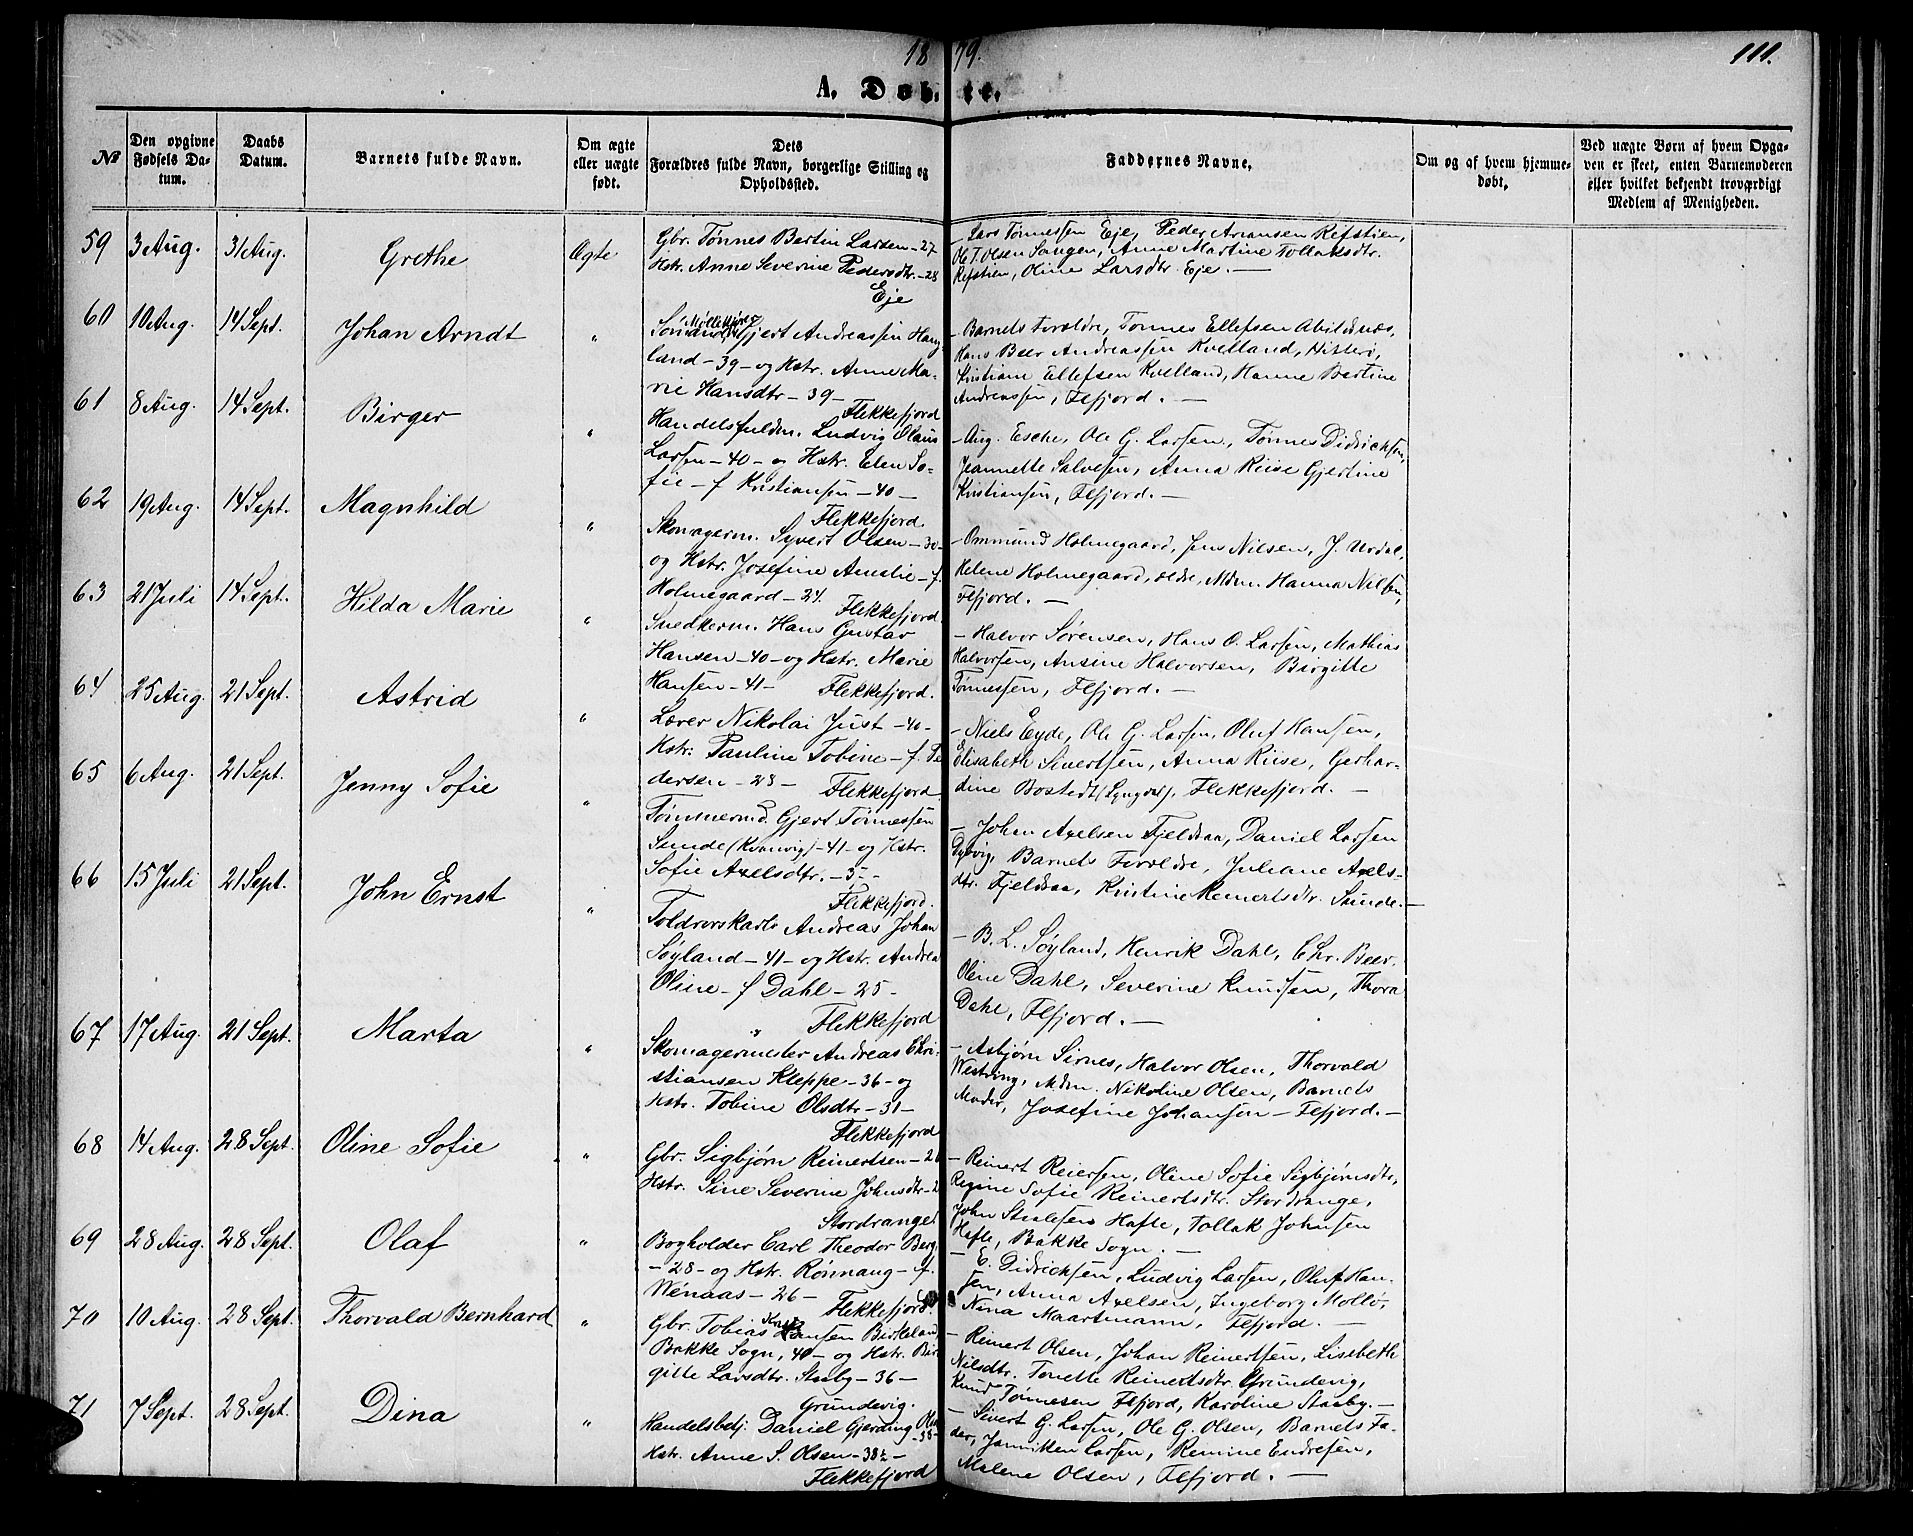 1879.
111.
A. Døbte.
№
Den opgivne Fødsels Da-tum.
Daabs Datum.
Barnets fulde Navn.
Om ægte eller uægte født.
Dets Forældres fulde Navn, borgerlige Stilling og Opholdssted.
Faddernes Navne.
Om og af hvem hjemme-døbt.
Ved uægte Børn af hvem Opga-ven er skeet, enten Barnemoderen eller hvilket bekjendt troværdigt Medlem af Menigheden.
59 3 Aug. 31 Aug. Grethe Ægte
Gbr. Tønnes Bertin Larsen - 27
Hstr. Anne Severine Pedersdtr. - 28
Eje
- Lars Tønnessen Eje, Peder Ariansen Refstien,
Ole T. Olsen Sangen, Anne Martine Tollaksdtr.
Refstien, Oline Larsdtr. Eje. -
60 10 Aug. 14 Sept. Johan Arndt "
Møllebygger
Gjert Andreassen Haug-
land - 39 - og Hstr. Anne Ma-
rie Hansdtr - 39 -
Flekkefjord
- Barnets Forældre, Tønnes Ellefsen Abildsnæs,
Hans Beer Andreassen Kvelland, Hitterø,
Kristian Ellefsen Kvelland, Hanne Bertine
Andreassen, Flfjord. -
61 8 Aug. 14 Sept. Birger "
Handelsfuldm. Ludvig Olaus
Larsen - 40 - og Hstr. Elen So-
fie - f Kristiansen - 40 -
Flekkefjord.
- Aug. Esche, Ole G. Larsen, Tønnes Didrichsen,
Jeannette Salvesen, Anna Riise Gjertine
Kristiansen, Flfjord. -
62 19 Aug. 14 Sept. Magnhild "
Skomagerm. Syvert Olsen - 30 -
og Hstr. Josefine Amalie - f.
Holmegaard - 24.
Flekkefjord.
- Ommund Holmegaard, Jens Nilsen, J. Urdal,
Helene Holmegaard, ældre, Mdm. Hanna Nilsen,
Flfjord. -
63 21 Juli 14 Sept. Hilda Marie "
Snedkerm. Hans Gustav
Hansen - 40 - og Hstr. Marie
Hansen - 41 - Flekkefjord.
- Halvor Sørensen, Hans O. Larsen, Mathias
Halvorsen, Ansine Halvorsen, Birgitte
Tønnessen, Flfjord. -
64 25 Aug. 21 Sept. Astrid "
Lærer Nikolai Just - 40 -
Hstr. Pauline Tobine - f. Pe
dersen - 28 - Flekkefjord.
- Niels Eyde, Ole G. Larsen, Oluf Hansen,
Elisabeth Sivertsen, Anna Riise, Gerhar-
dine Bostedt (Lyngdal). Flekkefjord. -
65 6 Aug. 21 Sept. Jenny Sofie "
Tømmermd. Gjert Tønnessen
Sunde (Kvanvig) - 41 - og Hstr.
Sofie Axelsdtr. - 3 -
Flekkefjord.
- Johan Axelsen Fjeldsaa, Daniel Larsen
Dybvig, Barnets Forældre, Juliane Axels-
dtr. Fjeldsaa, Kristine Reinertsdtr. Sunde. -
66 15 Juli 21 Sept. John Ernst "
Toldrorskarl Andreas Johan
Søyland - 41 - og Hstr. Andrea
Oline - f Dahl - 25 -
Flekkefjord
- B. L. Søyland, Henrik Dahl, Chr. Beer.
Oline Dahl, Severine Knudsen, Thora
Dahl, Flfjord. -
67 17 Aug. 21 Sept. Marta "
Skomagermester Andreas Chri-
stiansen Kleppe - 36 - og
Hstr. Tobine Olsdtr - 31 -
Flekkefjord
- Asbjørn Sirnes, Halvor Olsen, Thorvald
Westving, Mdm. Nikoline Olsen, Barnets
Moder, Josefine Johansen - Flfjord. -
68 14 Aug. 28 Sept. Oline Sofie "
Gbr. Sigbjørn Reinertsen - 2
Hstr. Sine Severine Johnsdtr - 2
Stordranget
- Reinert Reiersen, Oline Sofie Sigbjørnsdtr,
Regine Sofie Reinertsdtr. Stordrange,
John Staalesen Hafte, Tollak Johnsen
Hefte, Bakke Sogn. -
69 28 Aug. 28 Sept. Olaf "
Bogholder Carl Theodor Berg
- 28 - og Hstr. Rønnaug - f.
Wenaas - 26 -
Flekkefjord
- E. Didrichsen, Ludvig Larsen, Oluf Han-
sen, Anna Axelsen, Ingeborg Mollø,
Nina Maartmann, Flfjord. -
70 10 Aug. 28 Sept. Thorvald Bernhard "
Gbr. Tobias Hansen Birkeland
Bakke Sogn, 40 - og Hstr. Bir
gitte Larsdtr. Staaby - 36 -
Grundevig.
- Reinert Olsen, Johan Reinertsen, Lisebeth
Nilsdtr. Tonette Reinertsdtr. Grundevig,
Knud Tønnesen Flfjord, Karoline Staaby. -
71 7 Sept. 28 Sept. Dina "
Handelsbetj. Daniel Gjerding Olsen
- 38 -
Hstr. Anne S. Olsen - 38½ -
Flekkefjord
- Sivert G. Larsen, Ole G. Olsen, Barnets Fa-
der, Jannikken Larsen, Remine Endresen,
Malene Olsen, Flfjord. -